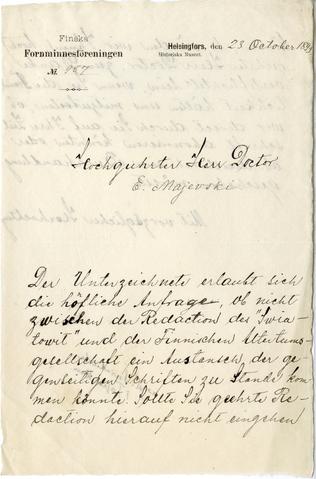 Finska
Fornminnesföreningen
№ 957
Helsingfors, den 23 October 189
Historiska Museet.
Hochgeehrter Herr Doctor
E. Majevski
Der Unterzeichnete erlaubt sich
die höfliche Anfrage, ob nicht
zwischen der Redaction des "Swia-
towit" und der Finnischen Altertums-
gesellschaft ein Austausch der ge-
genseitigen Schriften zu Stande kom-
men könnte. Sollte Die geehrte Re-
daction hierauf nicht eingehen